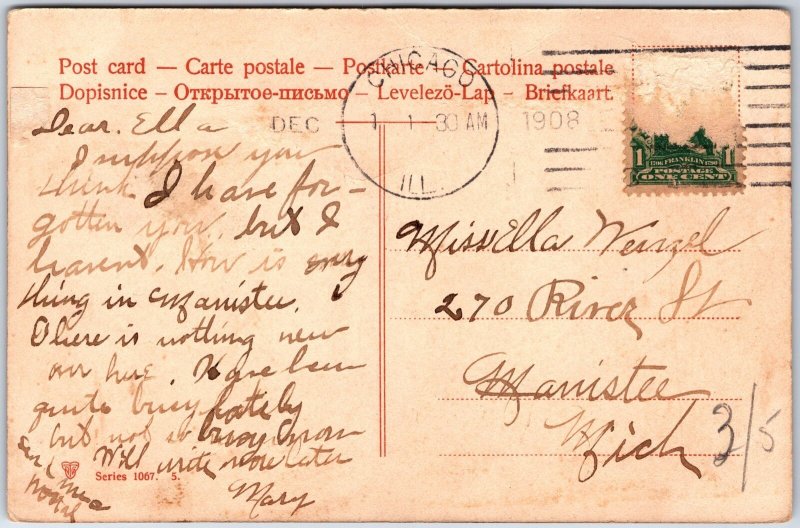 Post card — Carte postale — Postkarte — Cartolina postale
Dopisnice - Открытое-письмо - Levelező-Lap - Briefkaart.
CHICAGO
DEC 1 1 30 AM 1908
ILL.
1 1706 FRANKLIN 1790 1
POSTAGE
ONE CENT
Dear. Ella
I suppose you
think I have for-
gotten you, but I
havent. How is every
thing in Manistee.
There is nothing new
over here. Have been
quite busy lately
but not so busy now
Will write more later
Mary
Miss Ella Wenzel
270 River St
Manistee
Mich
3/5
Series 1067. 5.